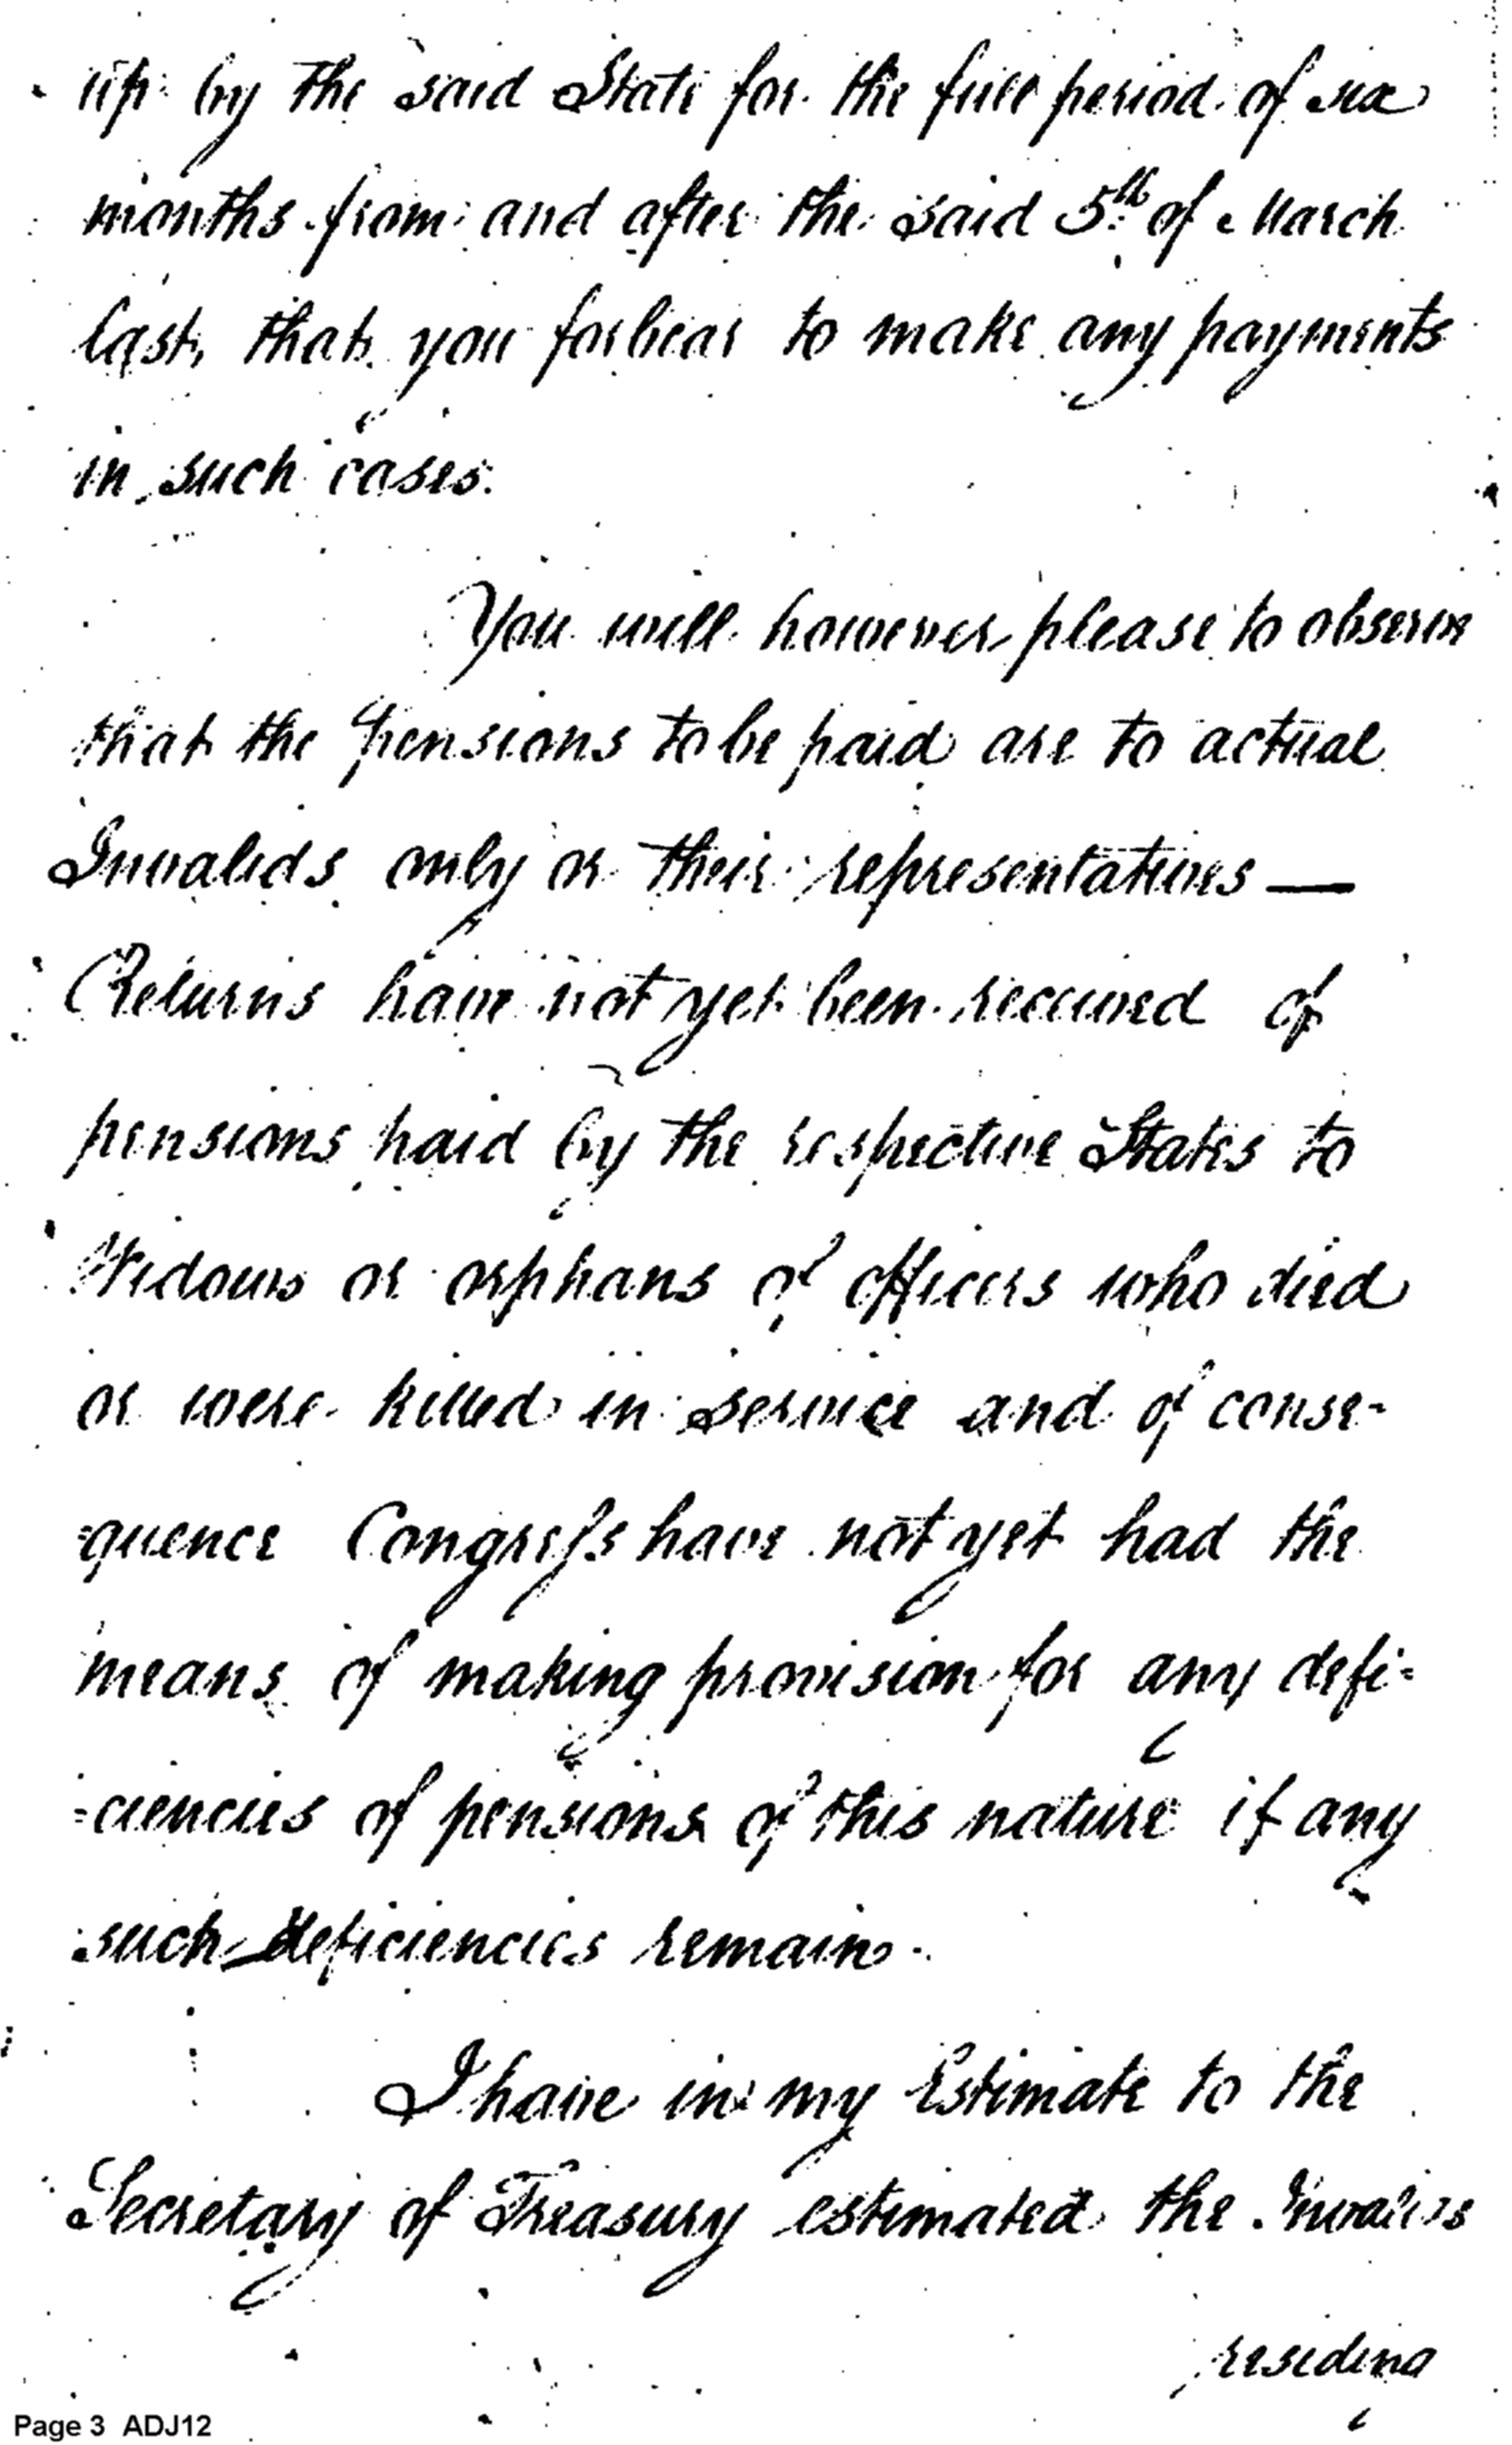 up by the said State for the full period of six
months from and after the said 5th of March
last, that you forbear to make any payments
in such cases.
You will however please to observe
that the pensions to be paid are to actual
Invalids only or their representatives —
Returns have not yet been received of
pensions paid by the respective States to
Widows or orphans of officers who died
or were killed in service and of conse-
=quence Congress have not yet had the
means of making provision for any defi=
=ciencies of pensions of this nature if any
such deficiencies remain.
I have in my Estimate to the
Secretary of Treasury estimated the Invalids
residing
Page 3 ADJ12